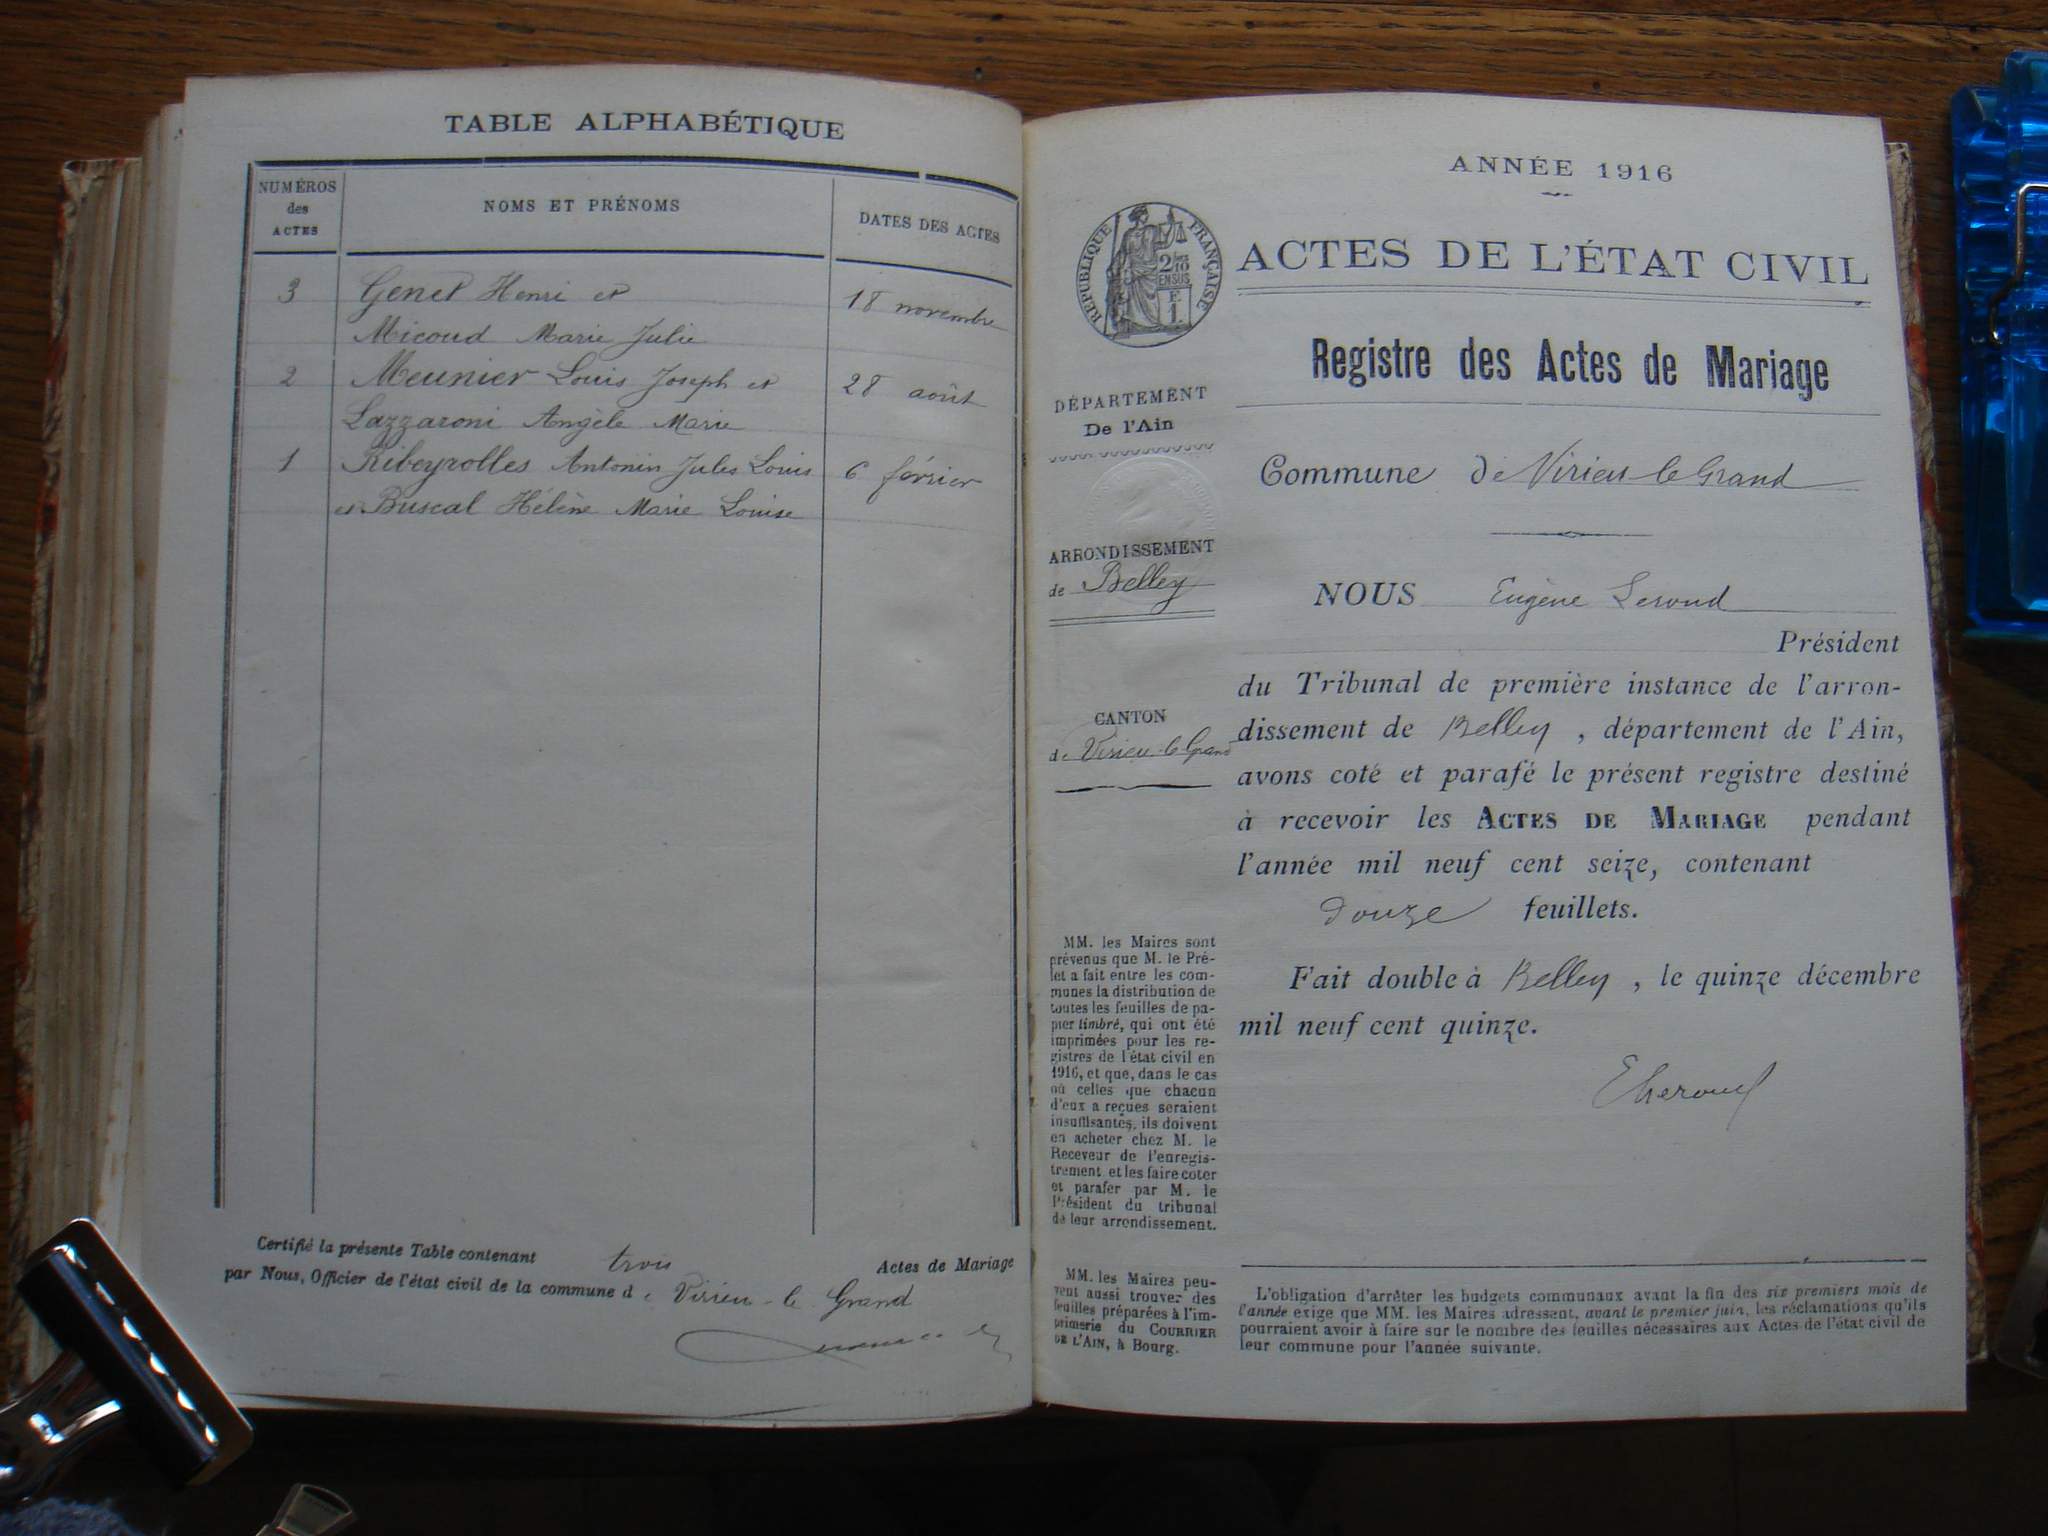 TABLE ALPHABÉTIQUE
NUMÉROS
des
ACTES
NOMS ET PRÉNOMS
DATES DES ACTES
3 Genet Henri et 18 novembre
Micoud Marie Julie
2 Meunier Louis Joseph et 28 août
Lazzaroni Angèle Marie
1 Ribeyrolles Antonin Jules Louis 6 février
et Buscal Hélène Marie Louise
Certifié la présente Table contenant trois Actes de Mariage
par Nous, Officier de l'état civil de la commune de Virieu-le-Grand
ANNÉE 1916
RÉPUBLIQUE FRANÇAISE
2/10
EN SUS
F.
1.
ACTES DE L'ÉTAT CIVIL
Registre des Actes de Mariage
DÉPARTEMENT
De l'Ain
Commune de Virieu-le-Grand
ARRONDISSEMENT
de Belley
CANTON
de Virieu-le-Grand
NOUS Eugène Leroud
Président
du Tribunal de première instance de l'arron-
dissement de Belley, département de l'Ain,
avons coté et parafé le présent registre destiné
à recevoir les ACTES DE MARIAGE pendant
l'année mil neuf cent seize, contenant
douze feuillets.
Fait double à Belley, le quinze décembre
mil neuf cent quinze.
MM. les Maires sont
prévenus que M. le Pré-
fet a fait entre les com-
munes la distribution de
toutes les feuilles de pa-
pier timbré, qui ont été
imprimées pour les re-
gistres de l'état civil en
1916, et que, dans le cas
où celles que chacun
d'eux a reçues seraient
insuffisantes, ils doivent
en acheter chez M. le
Receveur de l'enregis-
trement et les faire coter
et parafer par M. le
Président du tribunal
de leur arrondissement.
MM. les Maires peu-
vent aussi trouver des
feuilles préparées à l'im-
primerie du COURRIER
DE L'AIN, à Bourg.
L'obligation d'arrêter les budgets communaux avant la fin des six premiers mois de
l'année exige que MM. les Maires adressent, avant le premier juin, les réclamations qu'ils
pourraient avoir à faire sur le nombre des feuilles nécessaires aux Actes de l'état civil de
leur commune pour l'année suivante.